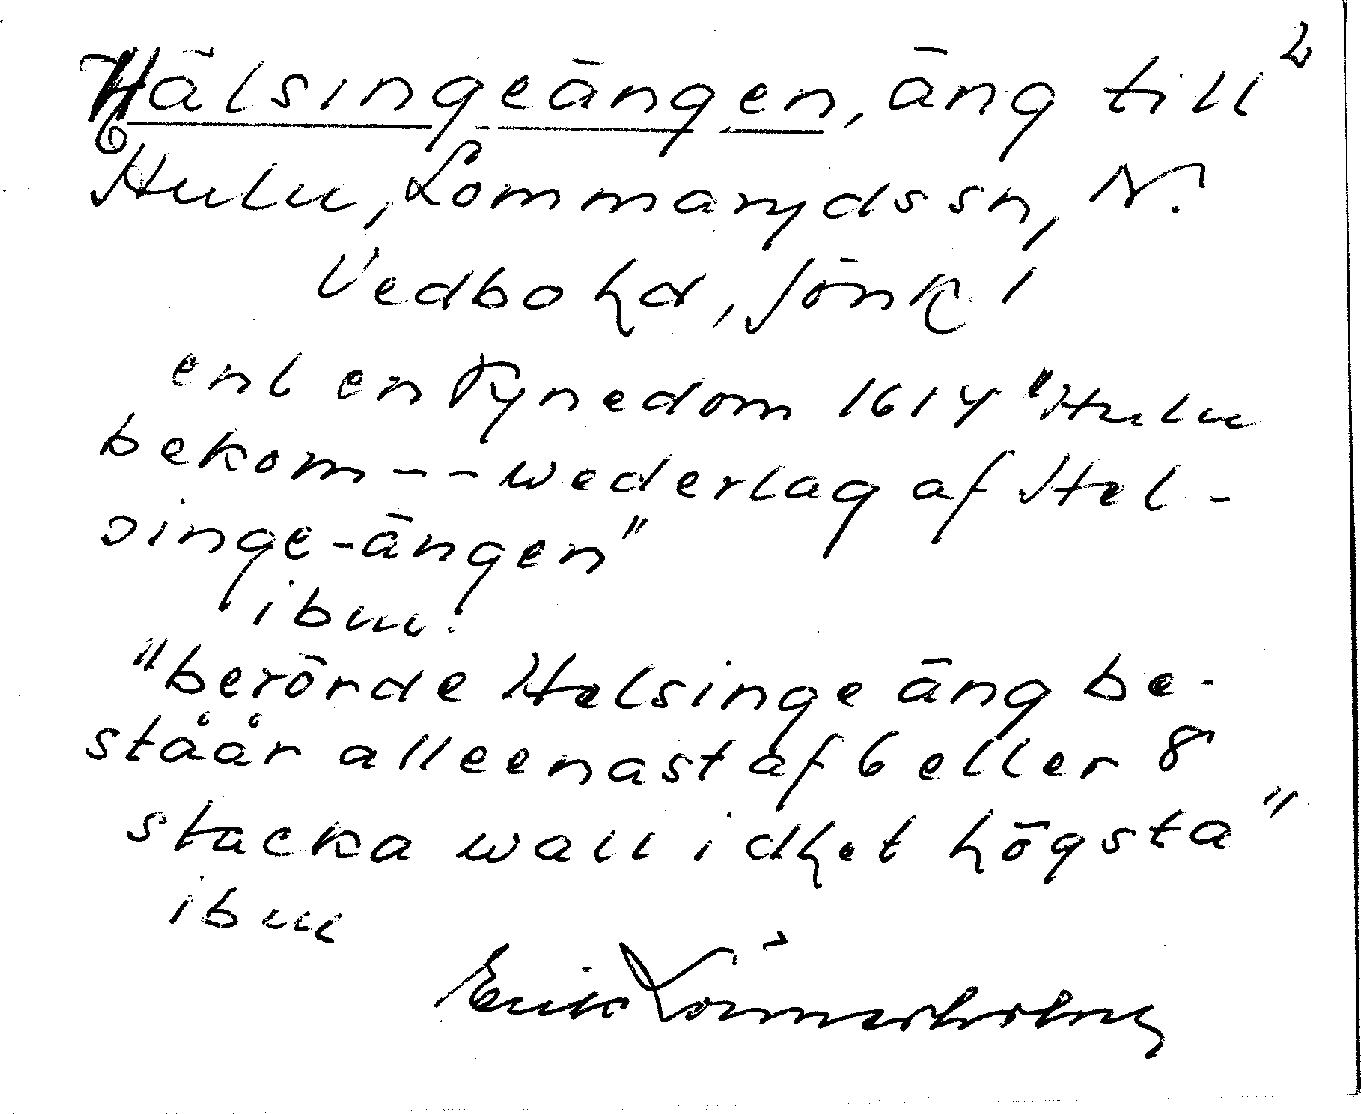 2
Hälsingeängen, äng till
Hulu, Lommarydssn, N.
Vedbo hd, Jönk l
enl en synedom 1614 "Hulu
bekom -- wederlag af Hel-
singe-ängen"
ibm.
"berörde Helsinge äng be-
ståår alleenast af 6 eller 8
stacka wall i dhet högsta"
ibm
Erik